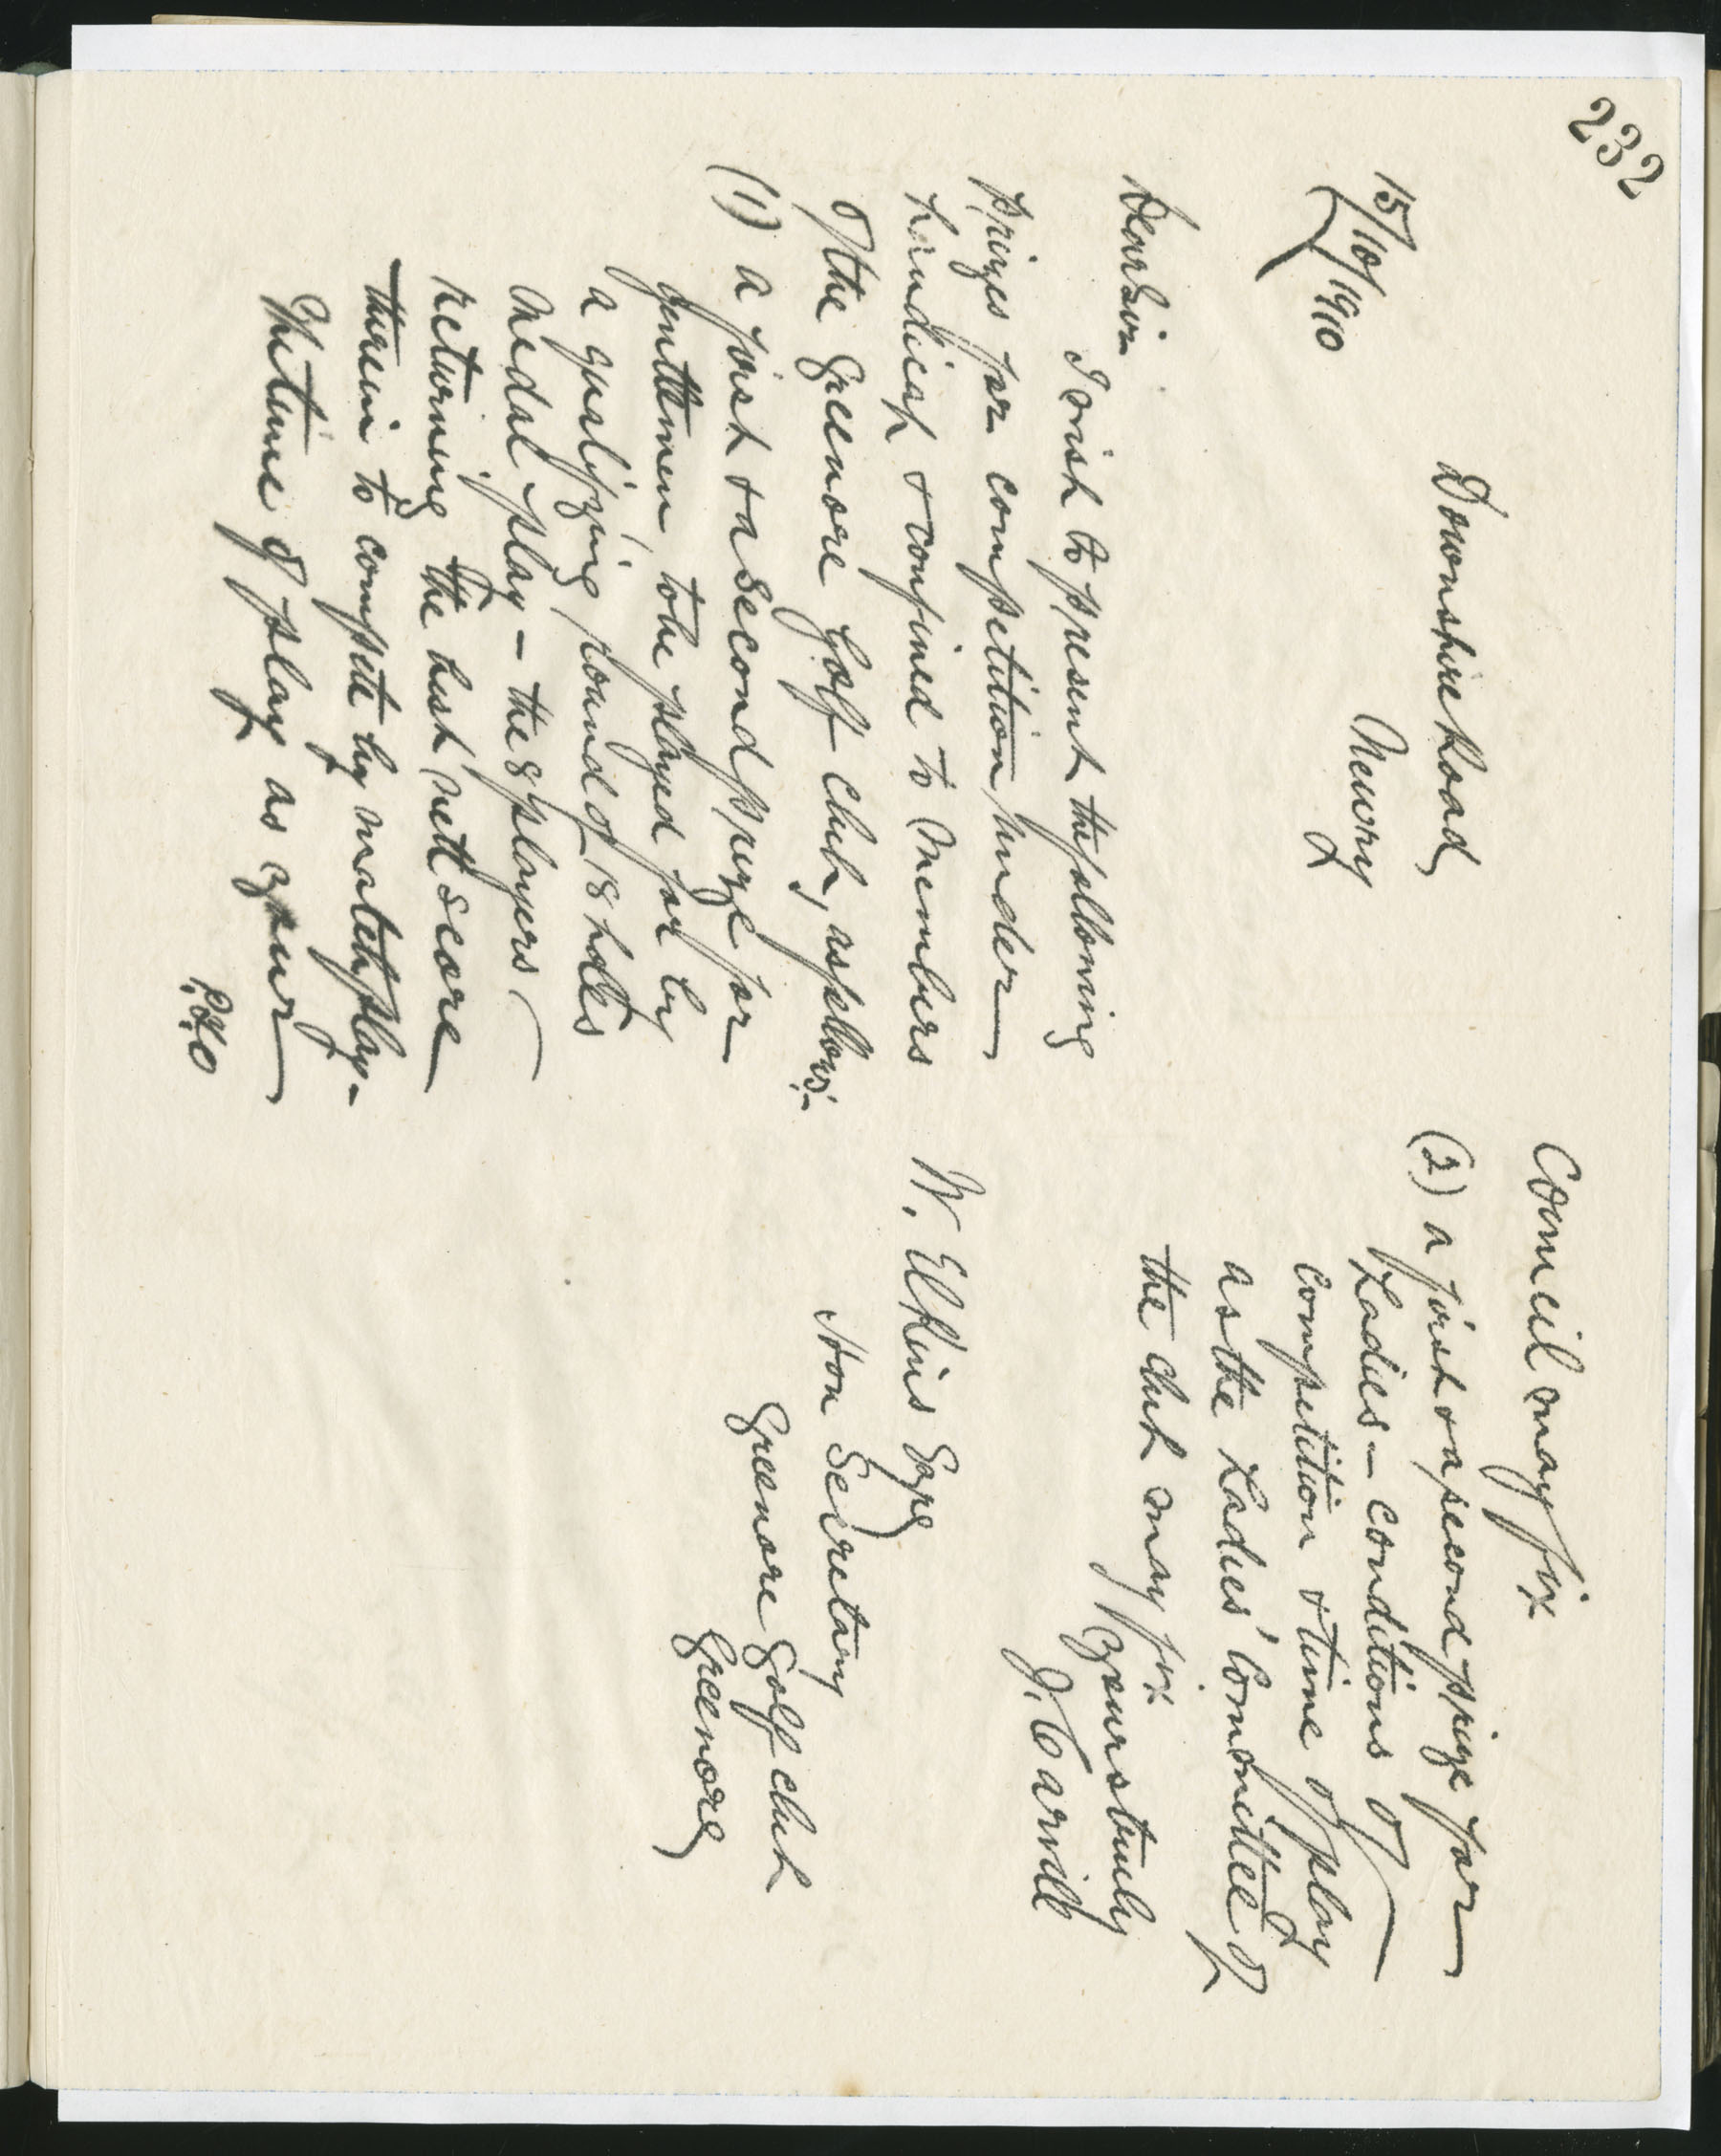 232
Downshire Road
Newry
15/10/1910
Dear Sir
I wish to present the following
prizes for competition, under
handicap & confined to members
of the Greenore Golf Club, as follows:-
(1) a first & a second prize for
gentlemen, to be played for by
a qualifying round of 18 holes
medal play - the 8 players
returning the best nett score
therein to compete by match play -
the time of play as your
P.T.O
Council may fix
(2) a first & a second prize for
Ladies - conditions of
competition & time of play
as the Ladies' Committee of
the club may fix
yours truly
J. Carvill
W. Elkins Esqe
Hon Secretary
Greenore Golf Club
Greenore